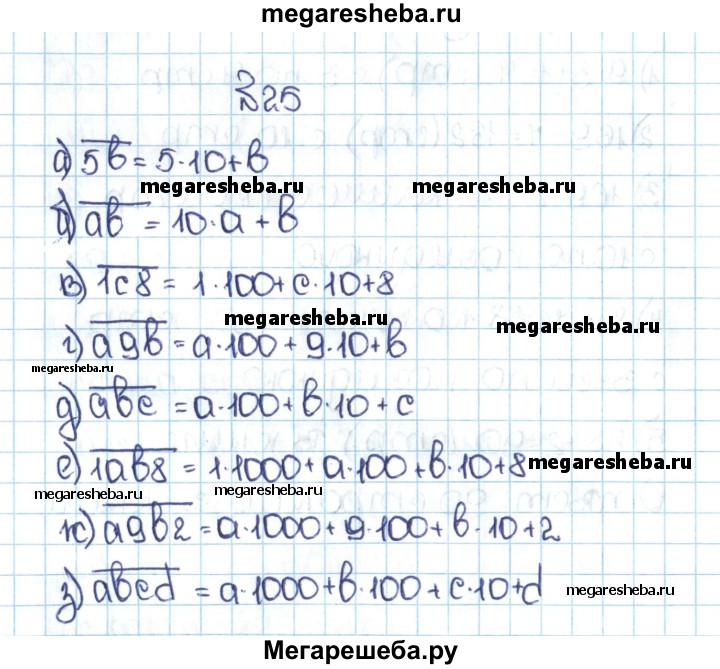 megaresheba.ru
№25
а) 5b = 5·10+b
megaresheba.ru megaresheba.ru
б) ab = 10·a+b
в) 1c8 = 1·100+c·10+8
megaresheba.ru megaresheba.ru
г) a9b = a·100+9·10+b
megaresheba.ru
д) abc = a·100+b·10+c
е) 1ab8 = 1·1000+a·100+b·10+8 megaresheba.ru
megaresheba.ru megaresheba.ru
ж) a9b2 = a·1000+9·100+b·10+2
з) abcd = a·1000+b·100+c·10+d megaresheba.ru
Мегарешеба.ру